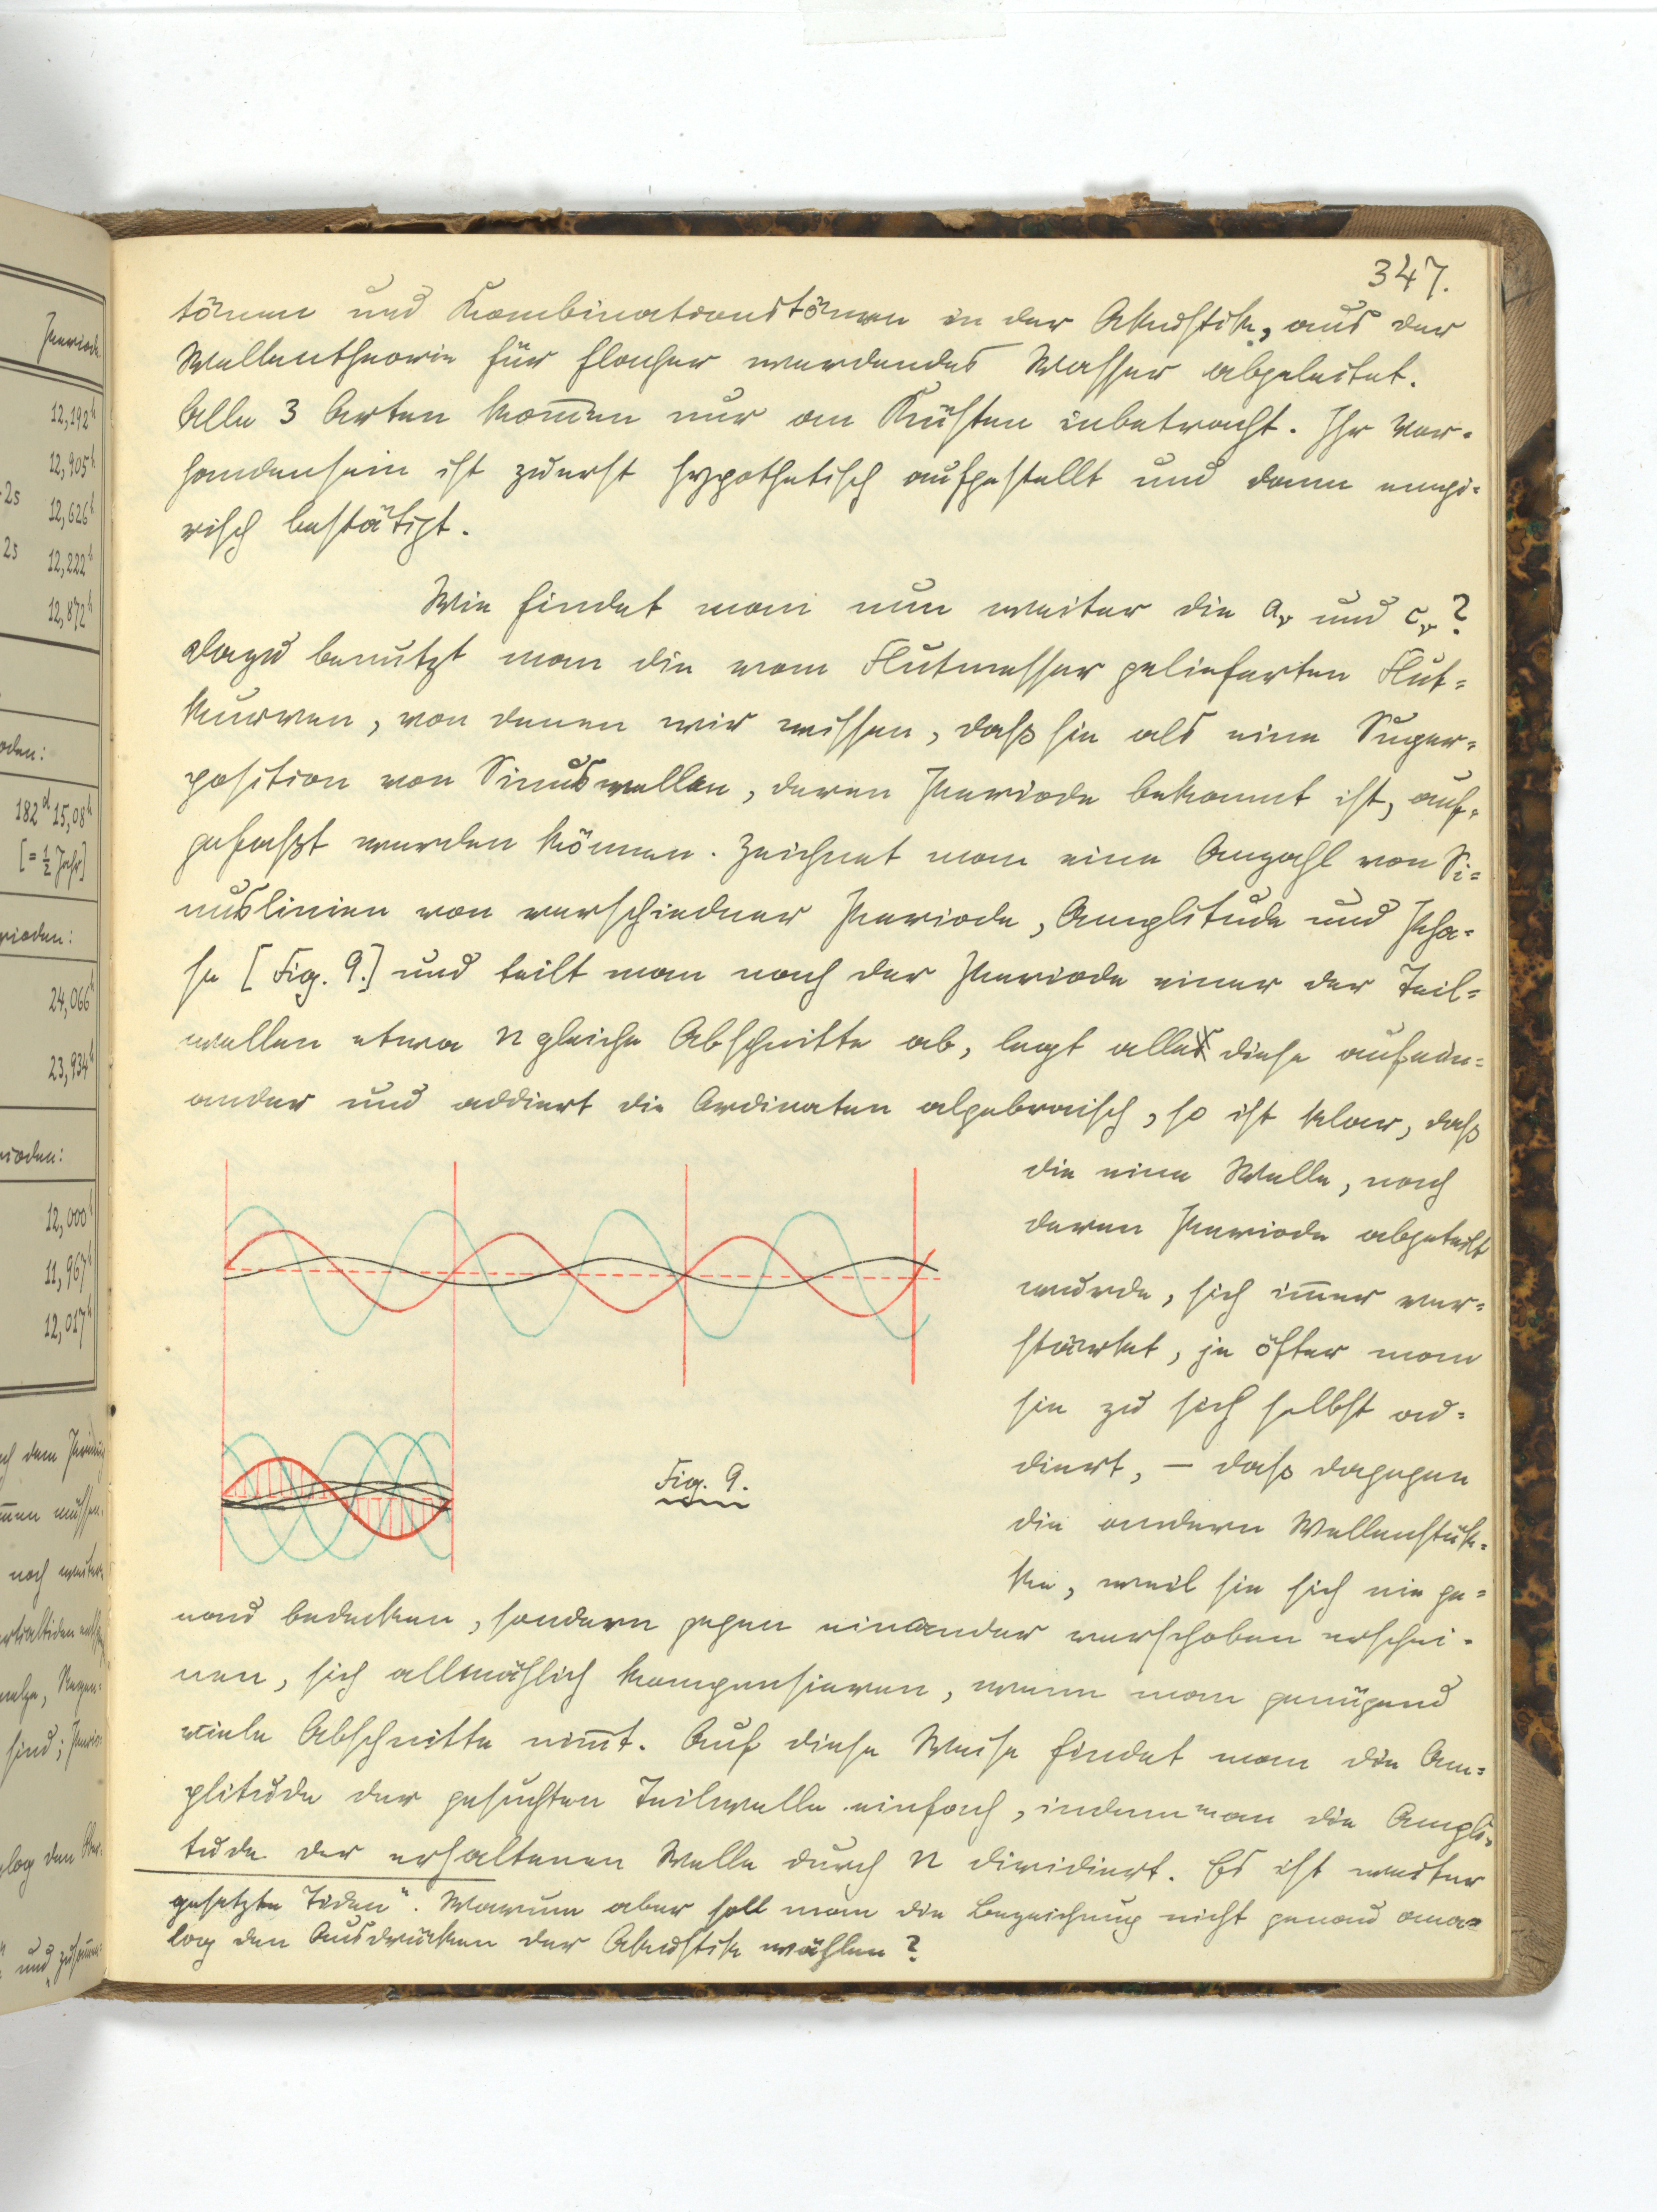 Periode
12,192h
12,905h
2s 12,626h
2s 12,222h
12,872h
oden:
182d 15,08h
[= 1/2 Jahr]
rioden:
24,066h
23,934h
rioden:
12,000h
11,967h
12,017h
347.
tönen und Kombinationstönen in der Akustik, aus der
Wellentheorie für flacher werdendes Wasser abgeleitet.
Alle 3 Arten kom̅en nur an Küsten inbetracht. Ihr Vor-
handensein ist zuerst hypothetisch aufgestellt und dann empi-
risch bestätigt.
Wie findet man nun weiter die aᵥ und cᵥ?
Dazu benutzt man die vom Flutmesser gelieferten Flut-
kurven, von denen wir wissen, daß sie als eine Super-
position von Sinuswellen, deren Periode bekannt ist, auf-
gefaßt werden können. Zeichnet man eine Anzahl von Si-
nuslinien von verschiedner Periode, Amplitude und Pha-
se [Fig. 9.] und teilt man nach der Periode einer der Teil-
wellen etwa n gleiche Abschnitte ab, legt alle diese aufein-
ander und addiert die Ordinaten algebraisch, so ist klar, daß
die eine Welle, nach
deren Periode abgeteilt
wurde, sich im̅er ver-
stärkt, je öfter man
sie zu sich selbst ad-
diert, – daß dagegen
die andern Wellenstük-
ke, weil sie sich nie ge-
Fig. 9.
nau bedecken, sondern gegen einander verschoben erschei-
nen, sich allmählich kompensieren, wenn man genügend
viele Abschnitte nim̅t. Auf diese Weise findet man die Am-
plitude der gesuchten Teilwelle einfach, indem man die Ampli-
tude der erhaltenen Welle durch n dividiert. Es ist weiter
gesetzte Tiden". Warum aber soll man die Bezeichnung nicht genau ana-
log den Ausdrücken der Akustik wählen?